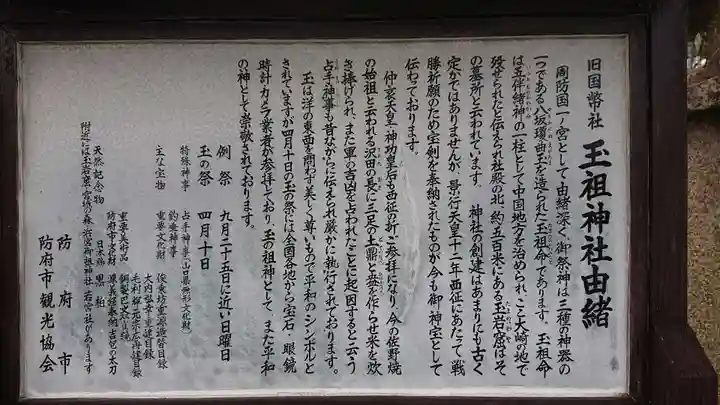 旧国幣社　玉祖神社由緒
周防国一ノ宮として由緒深く、御祭神は三種の神器の
一つである八坂瓊曲玉を造られた玉祖命であります。玉祖命
は五伴緒神の一柱として中国地方を治められ、こと大崎の地で
歿せられたと云えられ社殿の北、約五百米にある玉岩窟はそ
の墓所と云われています。　神社の創建はあまりにも古く
定かではありませんが、景行天皇十二年西征にあたって戦
勝祈願のため宝剣を奉納されたものが今も御神宝として
伝わっております。
仲哀天皇・神功皇后も西征の折ご参拝になり、今の佐野焼
の始祖と云われる沢田の長に三足の土鼎と盆を作らせ米を炊
き捧げられ、また軍の吉凶を占われたことに起因すると云う
占手神事も昔ながらに伝えられ厳かに執行されております。
玉は洋の東西を問わず美しく尊いもので平和のシンボルと
されていますが四月十日の玉の祭には全国各地から宝石・眼鏡
時計・カメラ業者が参拝しており、玉の祖神として、また平和
の神として崇敬されております。
例祭　九月二十五日に近い日曜日
玉の祭　四月十日
特殊神事　占手神事（山口県無形文化財）
釣垂神事
主な宝物　重要文化財　俊乗坊重源造替目録
大内弘幸
毛利輝元
重要美術品
防府市
天然記念物　日本鶏　黒柏
附近には玉岩窟・宮城の森・浜宮御祖神社・若宮社があります
防府市
防府市観光協会